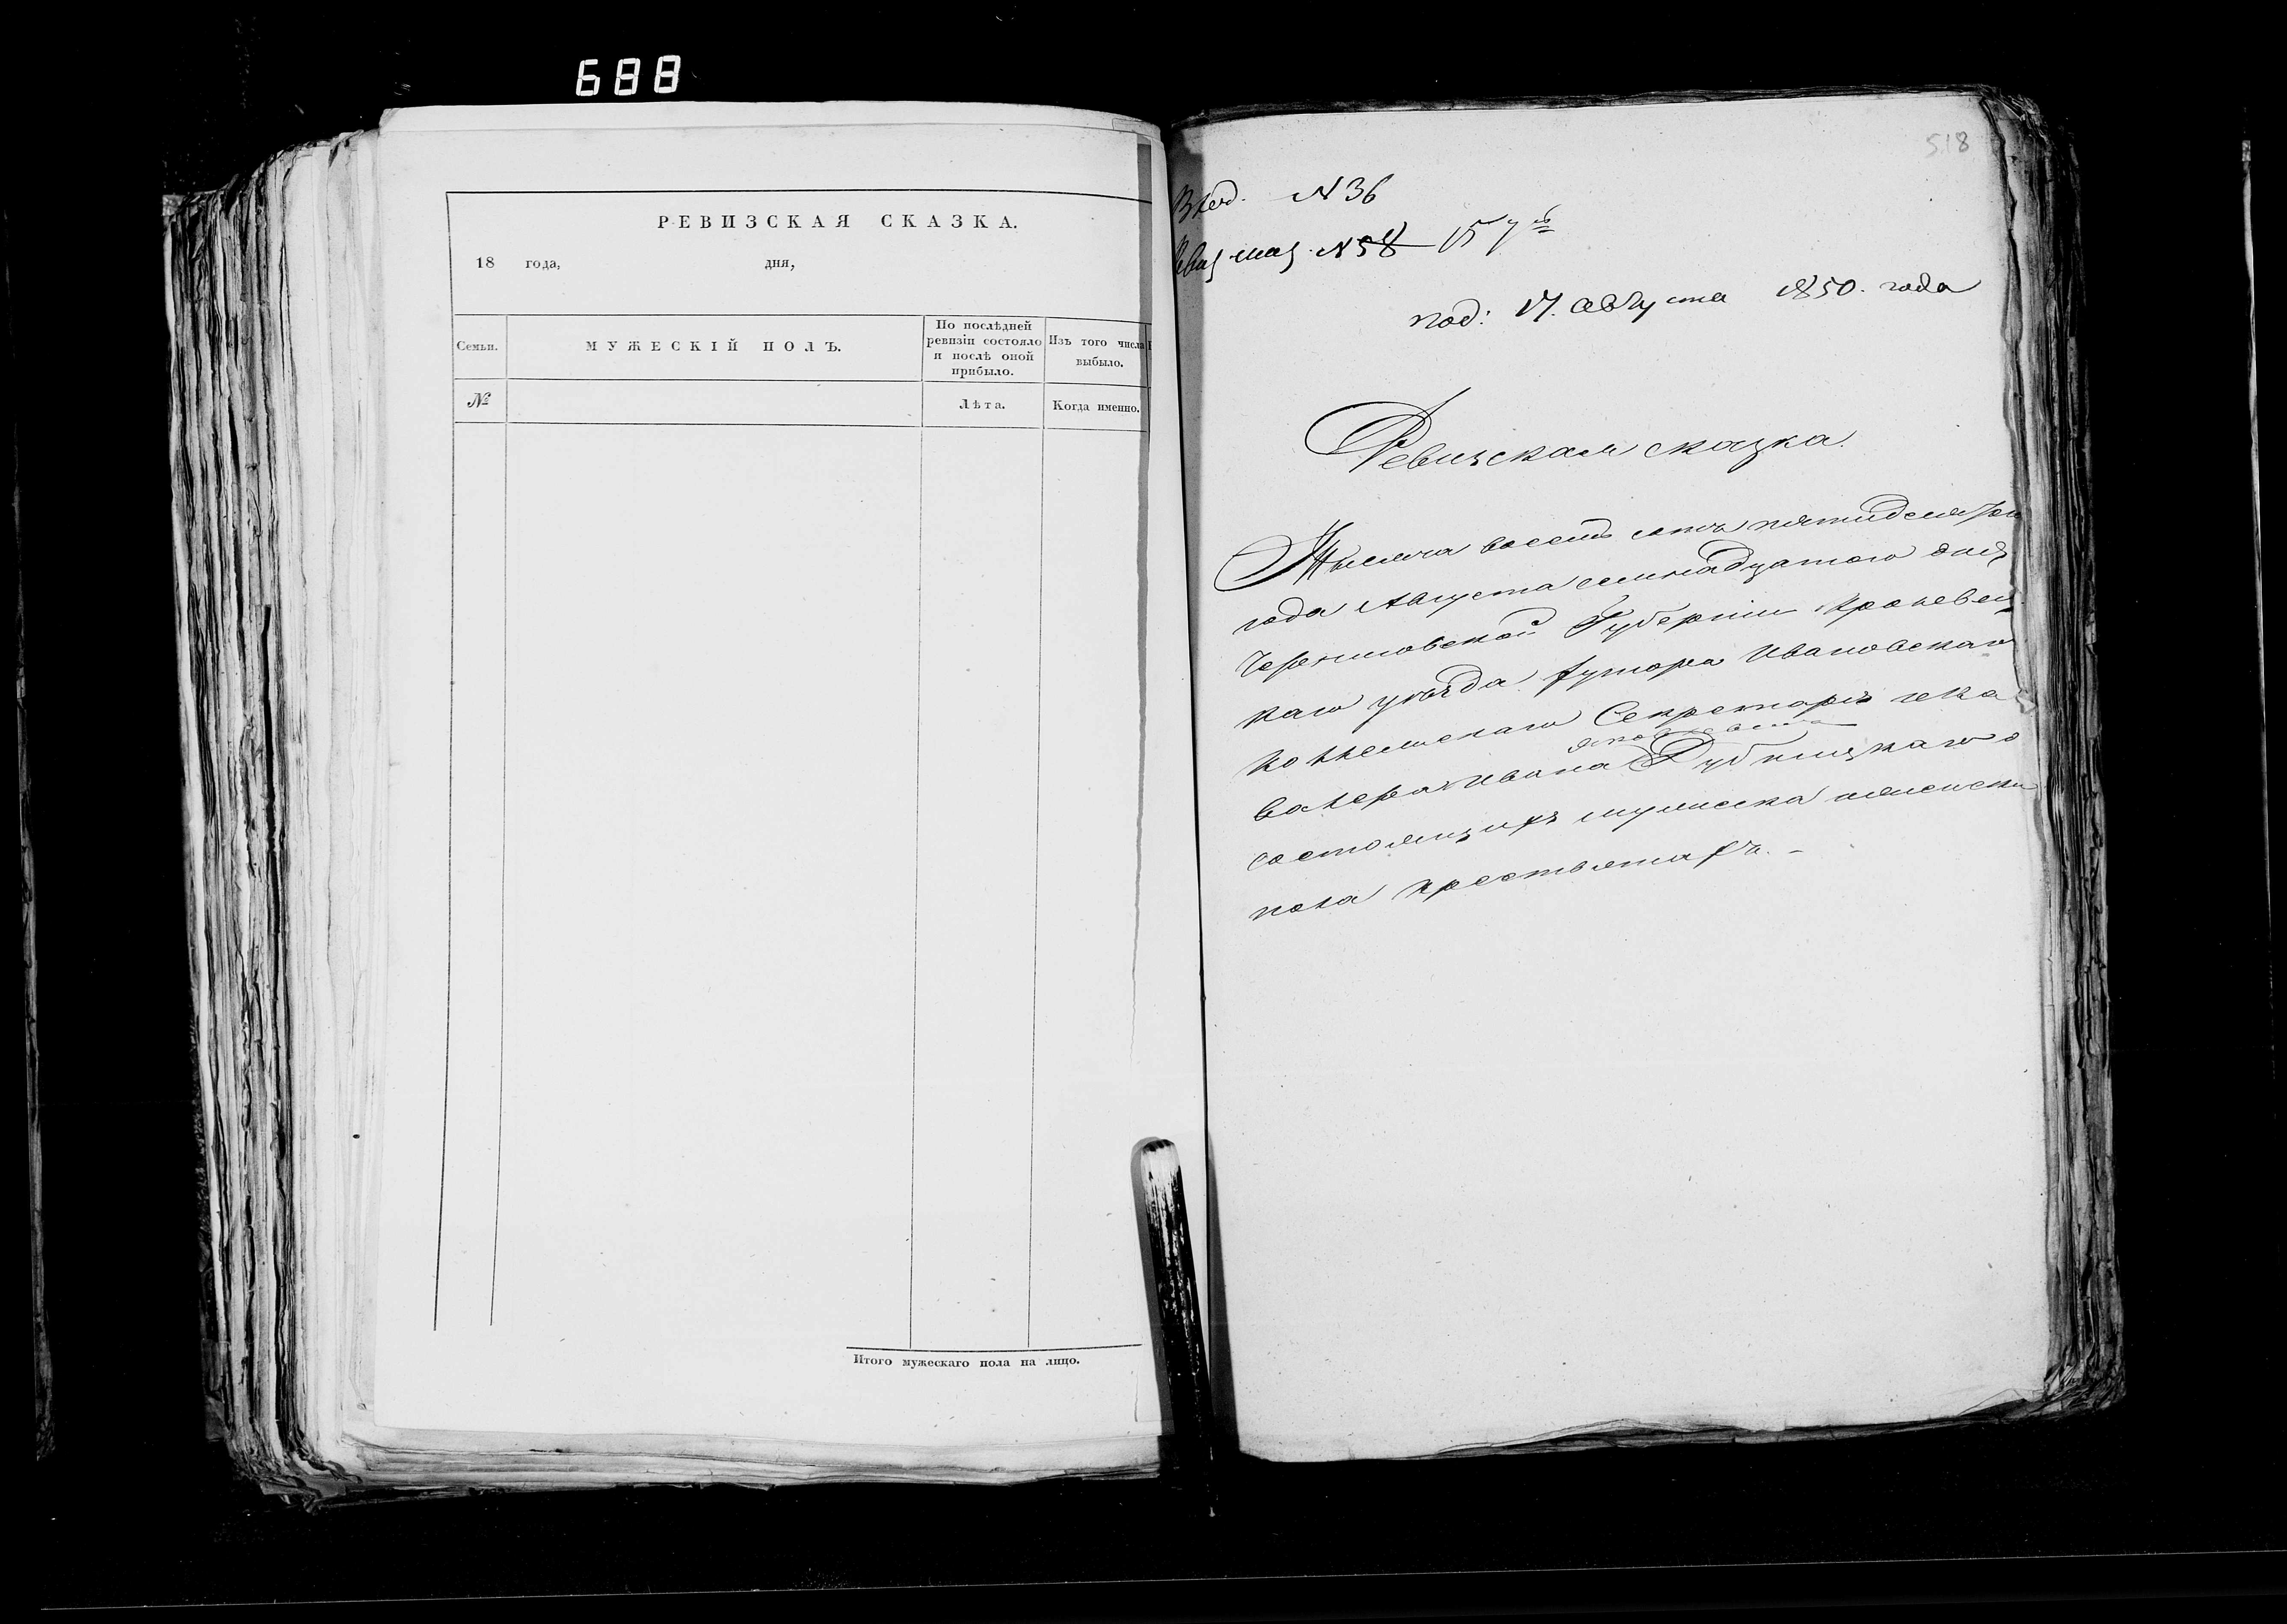 688
РЕВИЗСКАЯ СКАЗКА.
18 года, дня,
Семьи.
МУЖЕСКІЙ ПОЛЪ.
По послѣдней ревизіи состояло и послѣ оной прибыло.
Изъ того числа выбыло.
№
Лѣта.
Когда именно.
Итого мужескаго пола на лицо.
518
Вход. N 36
N 58 157
под: 17. августа 1850. года
Ревизская сказка.
Тысяча восемь сотъ пятидесят
года Августа семнадцатого дня
Черниговской Губерніи Кролевец
каго уѣзда хутора Ивановскаго
Коллежскаго Секретаря и Ка
валера Ивана Яковлевича Дубницкаго о
состоящихъ мужеска и женска
пола крестьянахъ. -